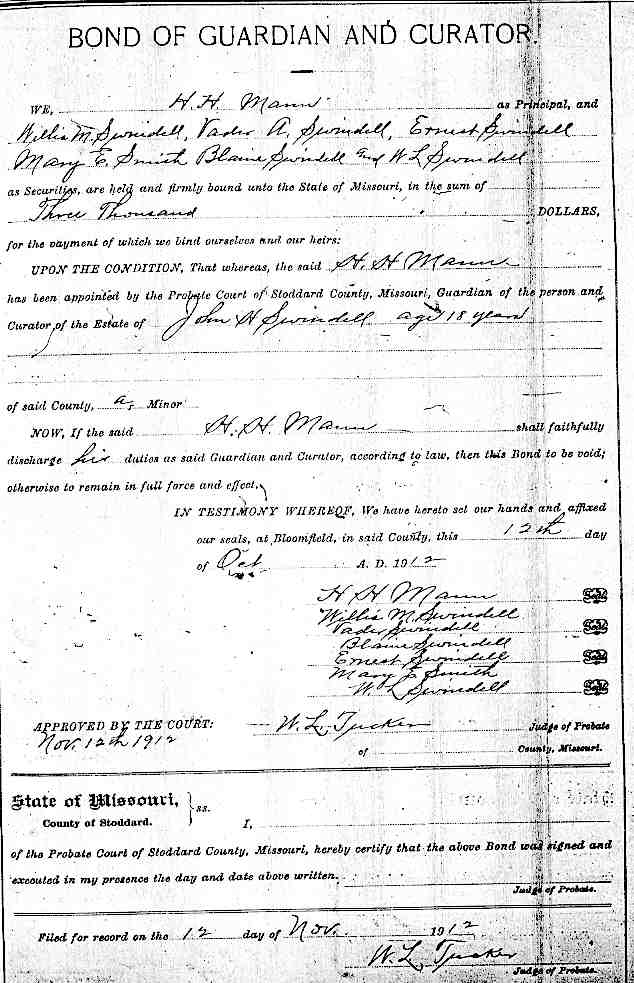 BOND OF GUARDIAN AND CURATOR.
WE, H. H. Mann as Principal, and
Willis M. Swindell, Vader A. Swindell, Ernest Swindell
Mary E. Smith Blaine Swindell and W L Swindell
as Securities, are held and firmly bound unto the State of Missouri, in the sum of
Three Thousand DOLLARS,
for the payment of which we bind ourselves and our heirs:
UPON THE CONDITION, That whereas, the said H. H. Mann
has been appointed by the Probate Court of Stoddard County, Missouri, Guardian of the person and
Curator of the Estate of John H Swindell age 18 years
of said County, a, Minor
NOW, If the said H. H. Mann shall faithfully
discharge his duties as said Guardian and Curator, according to law, then this Bond to be void;
otherwise to remain in full force and effect.
IN TESTIMONY WHEREOF, We have hereto set our hands and affixed
our seals, at Bloomfield, in said County, this 12th day
of Oct A. D. 1912
H H Mann Seal
Willis M. Swindell
Vader Swindell Seal
Blaine Swindell
Ernest Swindell Seal
Mary E Smith
W L Swindell Seal
APPROVED BY THE COURT: W. L. Tucker Judge of Probate
Nov. 12th 1912 of County, Missouri.
State of Missouri, ss.
County of Stoddard. I,
of the Probate Court of Stoddard County, Missouri, hereby certify that the above Bond was signed and
executed in my presence the day and date above written.
Judge of Probate.
Filed for record on the 12 day of Nov. 1912
W. L. Tucker
Judge of Probate.